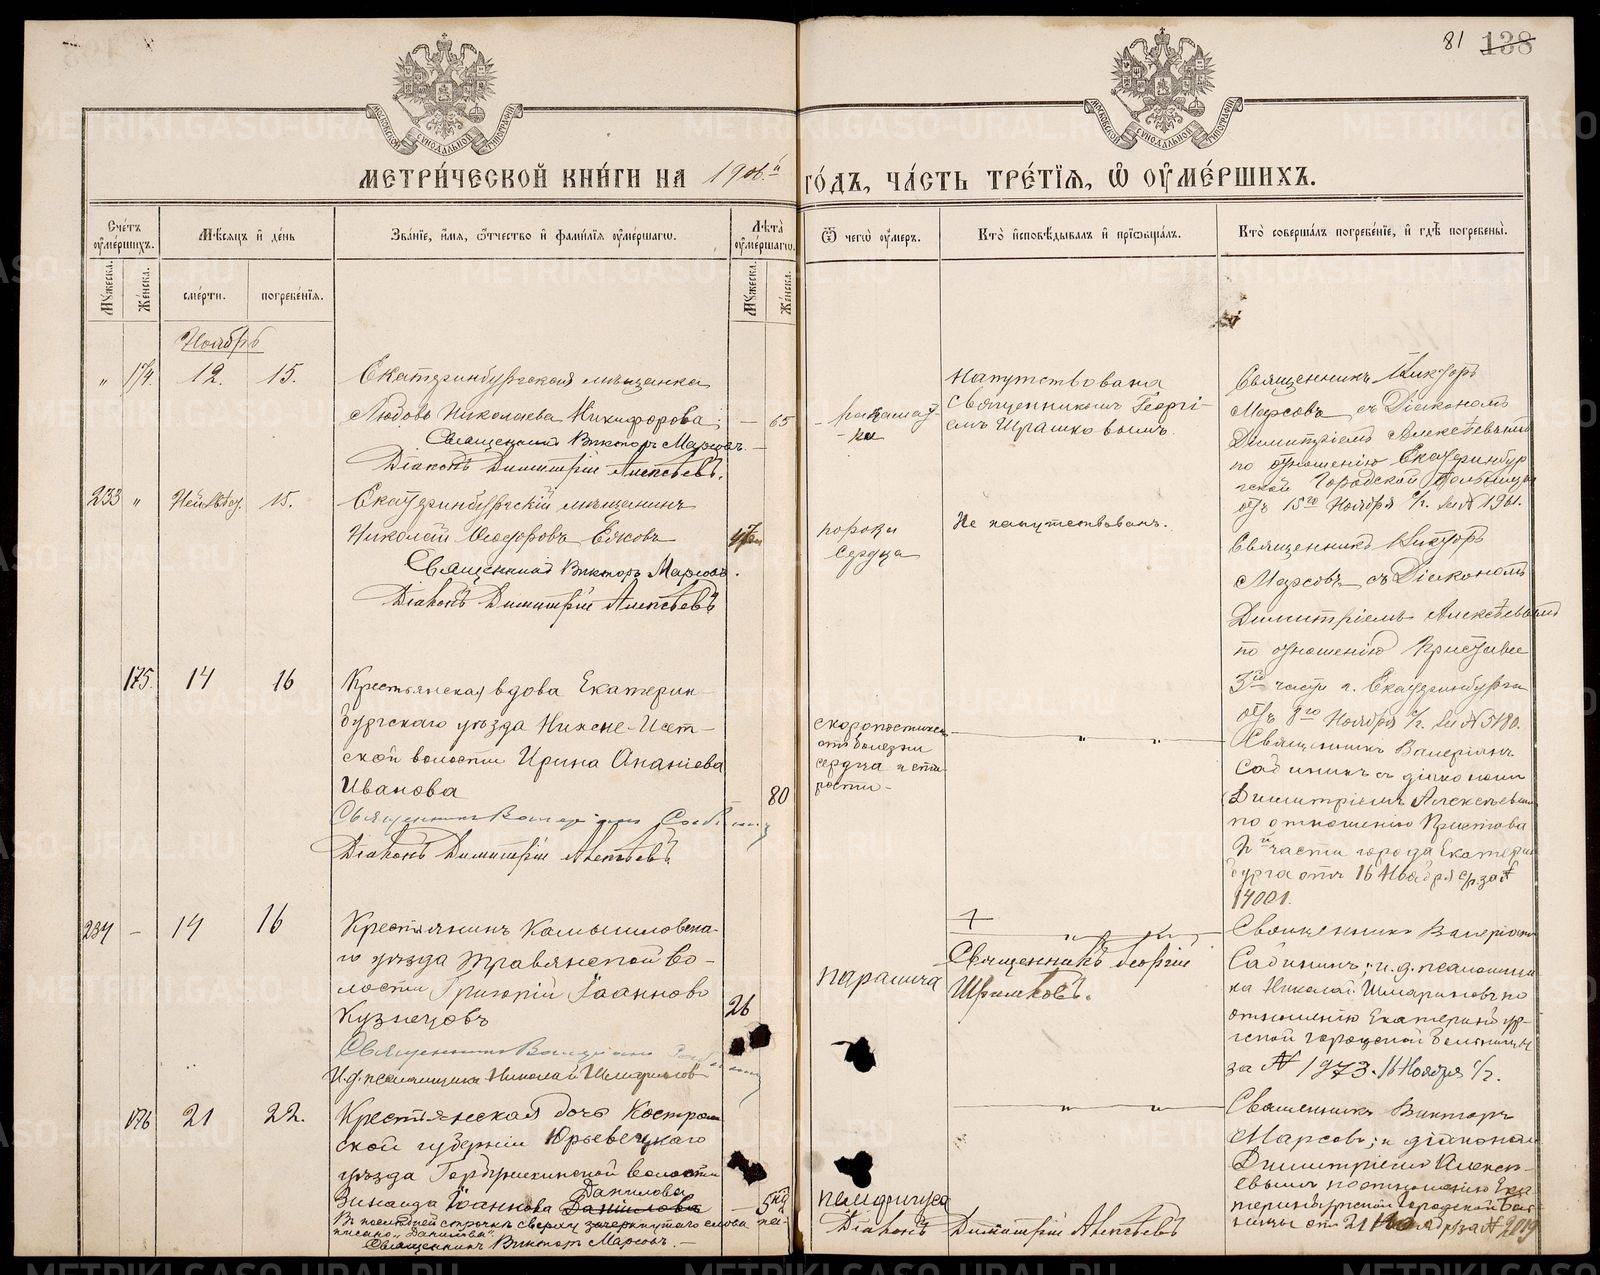 81 138
МОСКОВСКОЙ СѴНОДАЛЬНОЙ ТИПОГРАФІИ
МОСКОВСКОЙ СѴНОДАЛЬНОЙ ТИПОГРАФІИ
МЕТРИ́ЧЕСКОЙ КНИ́ГИ НА 1906.й ГО́ДЪ, ЧА́СТЬ ТРЕ́ТІѦ, Ѿ ОУ҆МЕ́РШИХЪ.
Сче́тъ оу҆ме́ршихъ.
Мѣ́сяцъ и҆ де́нь
Зва́нїе, и҆́мя, ѻ҆́тчество и҆ фами́лїя оу҆ме́ршагѡ.
Лѣ́та оу҆ме́ршагѡ.
Ѿ чегѡ̀ оу҆́меръ.
Кто̀ и҆сповѣ́дывалъ и҆ прїѡбща́лъ.
Кто̀ соверша́лъ погребе́нїе, и҆ гдѣ̀ погребены̀.
Мꙋ́жеска.
Же́нска.
сме́рти.
погребе́нїя.
Мꙋ́жеска.
Же́нска.
Ноябрь
" 174. 12. 15.
Екатеринбургская мѣщанка
Любовь Николаева Никифорова
— 65
Священникъ Викторъ Марсовъ.
Діаконъ Димитрій Алексѣевъ.
Напутствована
священникомъ Георгі-
емъ Шрамковымъ.
Священникъ Викторъ
Марсовъ съ Діакономъ
Димитріемъ Алексѣевымъ
по отношенію Екатеринбур
гской Городской больницы
отъ 15го Ноября с/г. за № 1961.
233 " Неизвѣст. 15.
Екатеринбургскій мѣщанинъ
Николай Ѳеодоровъ Ежовъ
47
Священникъ Викторъ Марсовъ.
Діаконъ Димитрій Алексѣевъ
порока
сердца
Не напутствованъ.
Священникъ Викторъ
Марсовъ съ Діакономъ
Димитріемъ Алексѣевымъ
по отношенію Пристава
3й части г. Екатеринбурга
отъ 8го Ноября с/г. за № 5180.
175. 14 16
Крестьянская вдова Екатерин-
бургскаго уѣзда Нижне-Исет-
ской волости Ирина Ананіева
Иванова
80
Священникъ Валеріанъ Сабининъ
Діаконъ Димитрій Алексѣевъ
скоропостижно
отъ болезни
сердца и ста
рости.
" "
Священникъ Валеріанъ
Сабининъ съ діакономъ
Димитріемъ Алексѣевымъ
по отношенію Пристава
части города Екатерин
бурга отъ 16 Ноября с/г за №
14001.
234 — 14 16
Крестьянинъ Камышловска-
го уѣзда Травянской во-
лости Григорій Іоанновъ
Кузнецовъ
26
Священникъ Валеріанъ Сабининъ
И.д. псаломщика Николай
паралича
Священникъ Георгій
Шрамковъ.
Священникъ Валеріанъ
Сабининъ; и. д. псаломщи
ка Николай по
отношенію Екатеринбур-
гской городской больницы
за № 1973. 16 Ноября с/г.
176 21 22.
Крестьянская дочь Костром
ской губерніи Юрьевецкаго
уѣзда Горбушкинской волости
Данилова
Зинаида Іоаннова Даніилова
— 5
Въ послѣдней строчкѣ сверху зачеркнутаго слова на-
писано „Данилова"
Священникъ Викторъ Марсовъ. —
пемфигуса
Діаконъ Димитрій Алексѣевъ
" "
Священникъ Викторъ
Марсовъ; и діаконъ
Димитріемъ Алексѣ-
евымъ по отношенію Ека
теринбургской Городской Боль
ницы отъ 21 Ноября за № 2019